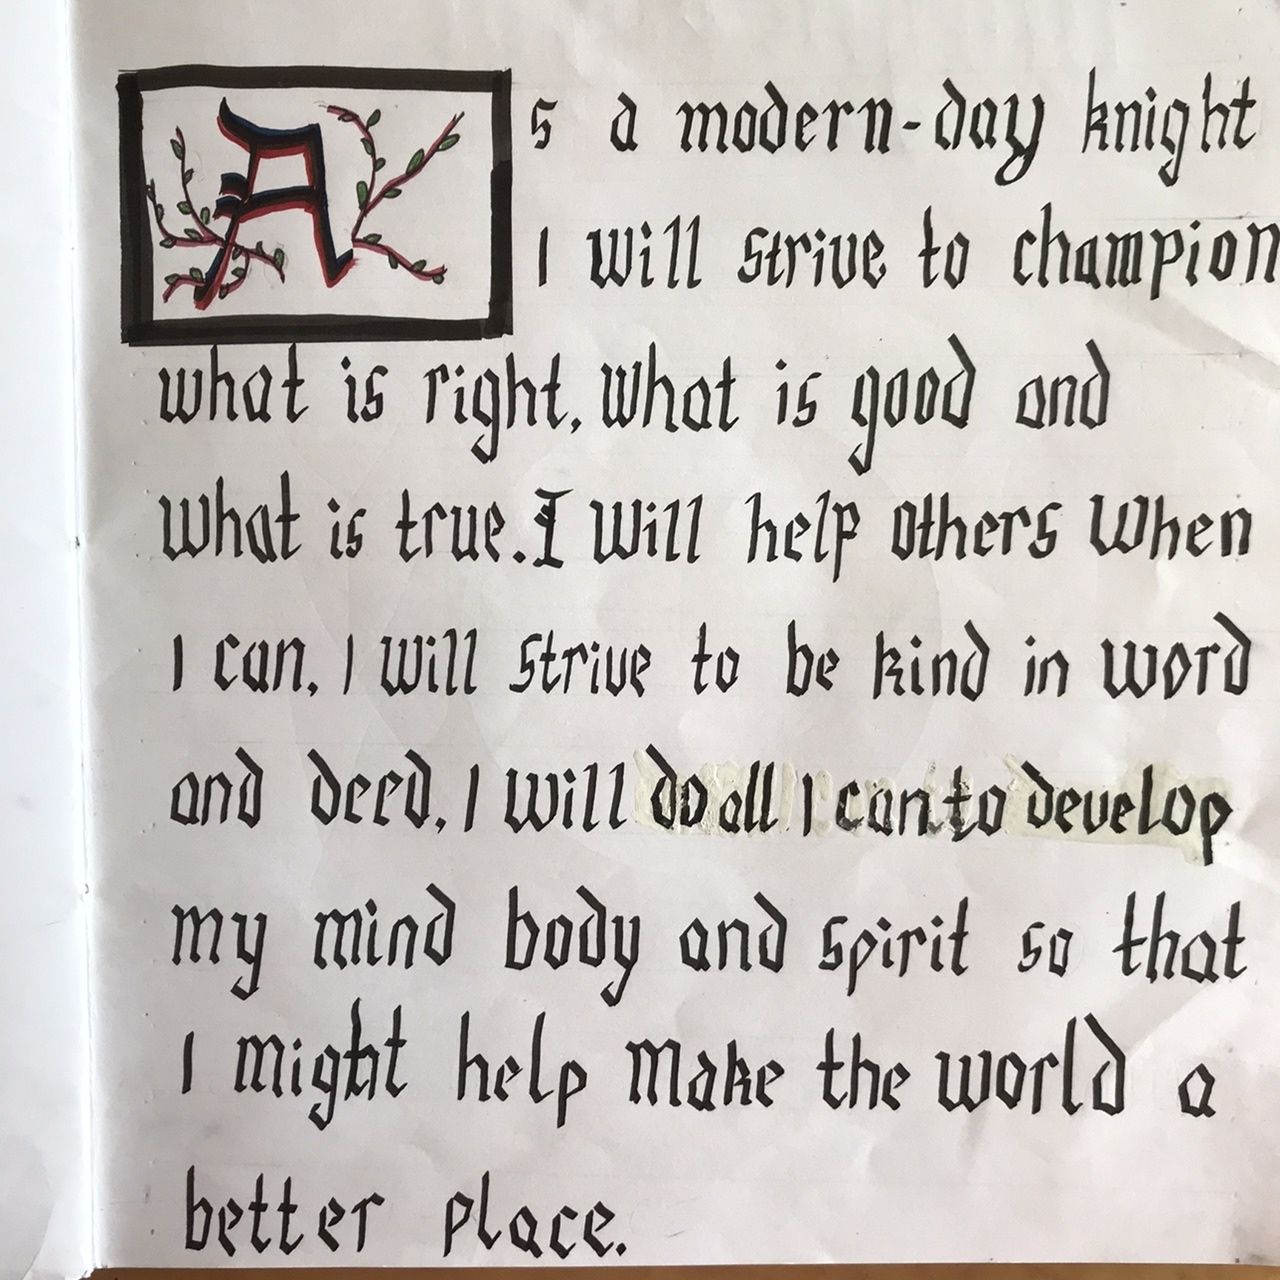 As a modern-day knight
I will strive to champion
what is right, what is good and
what is true. I will help others when
I can, I will strive to be kind in word
and deed, I will do all I can to develop
my mind body and spirit so that
I might help make the world a
better place.